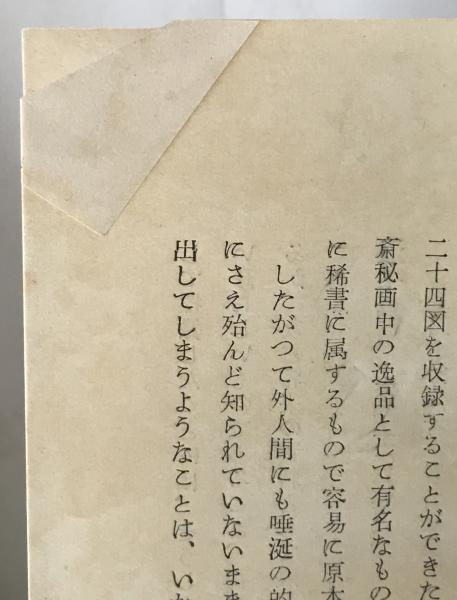 二十四図を収録することができた
斎秘画中の逸品として有名なもの
に稀書に属するもので容易に原本
したがつて外人間にも唾涎の的
にさえ殆んど知られていないまま
出してしまうようなことは、いか